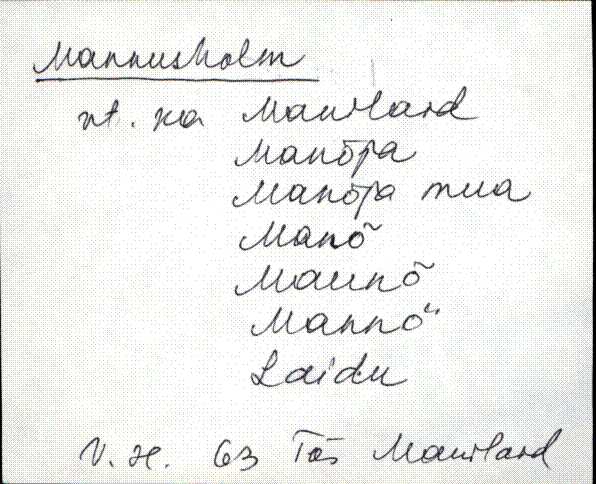 Mannusholm
vt. ka Manilaid
Manõja
Manõja maa
Manõ
Maunõ
Mannö
Laidu
V. H. 63 Tõs Manilaid